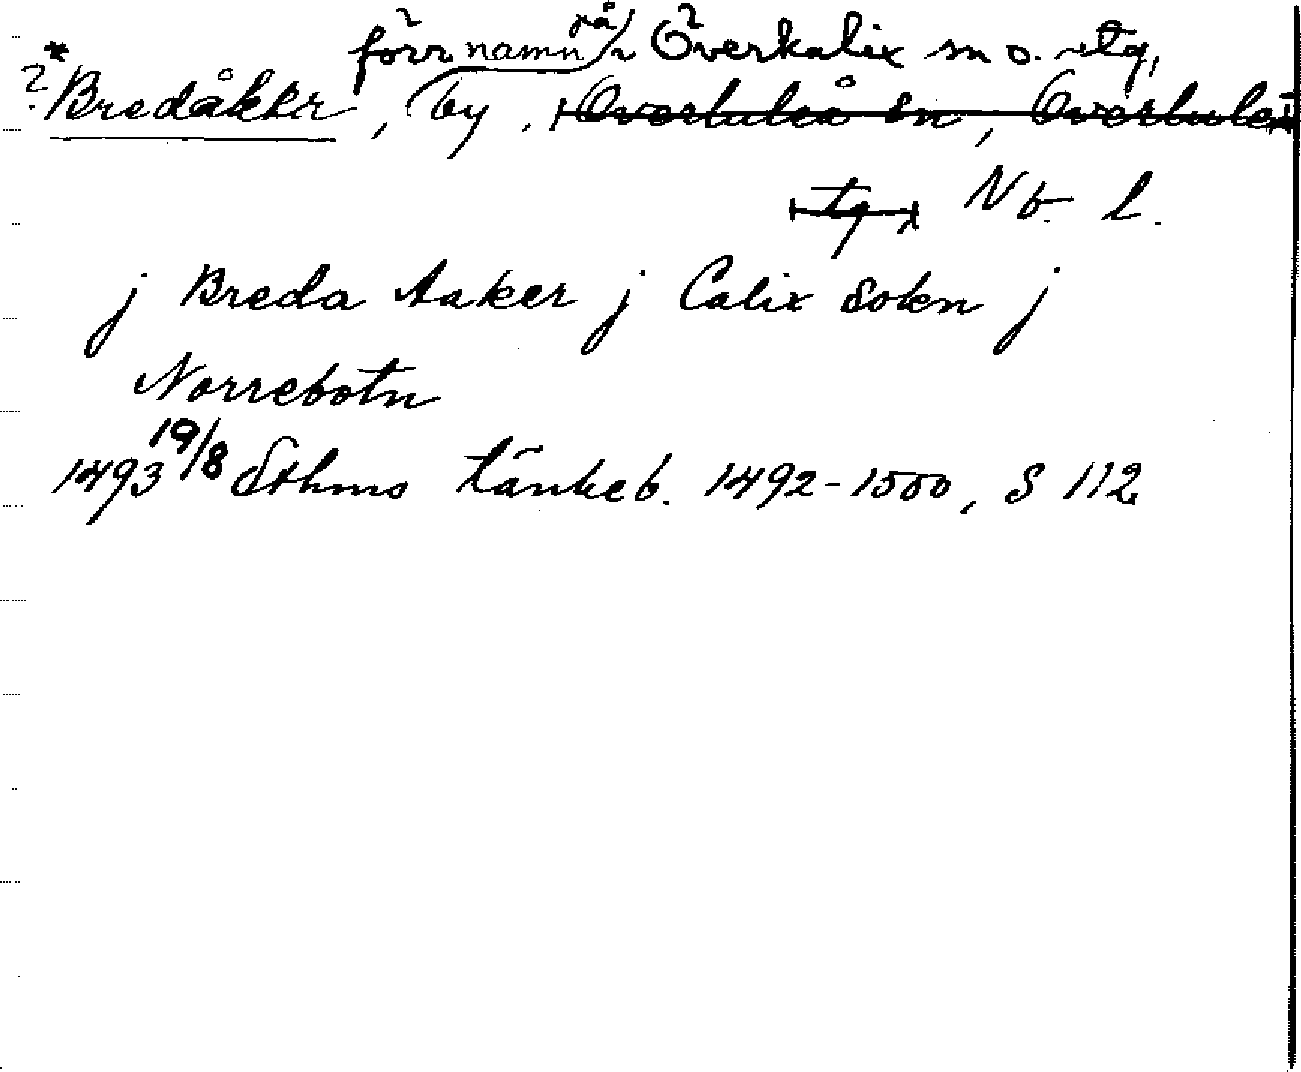 förr namn på Överkalix sn o. tg,
?*Bredåker, by, Överluleå sn, Överluleå
tg, Nb. l.
j Breda Aaker j Calix Sokn j
Norrebotn
1493 19/8 Sthms tänkeb. 1492-1500, S 112